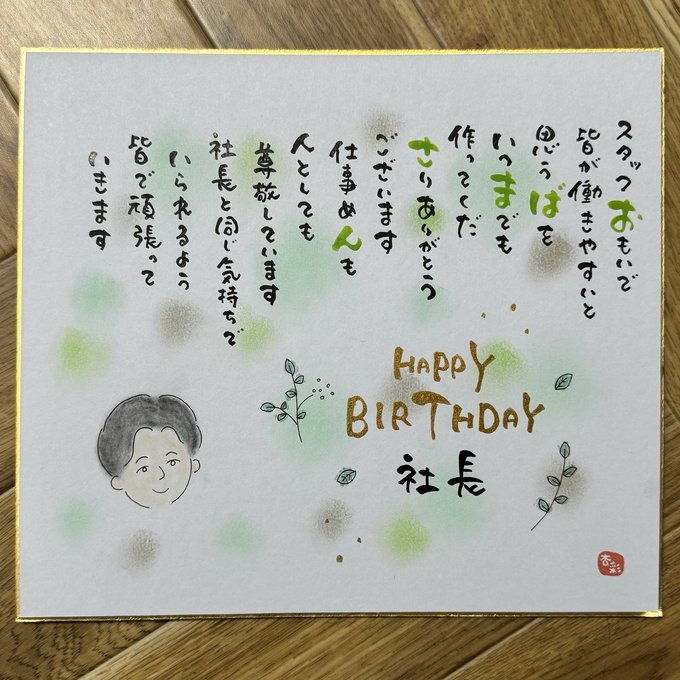 スタッフおもいで
皆が働きやすいと
思うばを
いつまでも
作ってくだ
さりありがとう
ございます
仕事めんも
人としても
尊敬しています
社長と同じ気持ちで
いられるよう
皆で頑張って
いきます
HAPPY
BIRTHDAY
社長